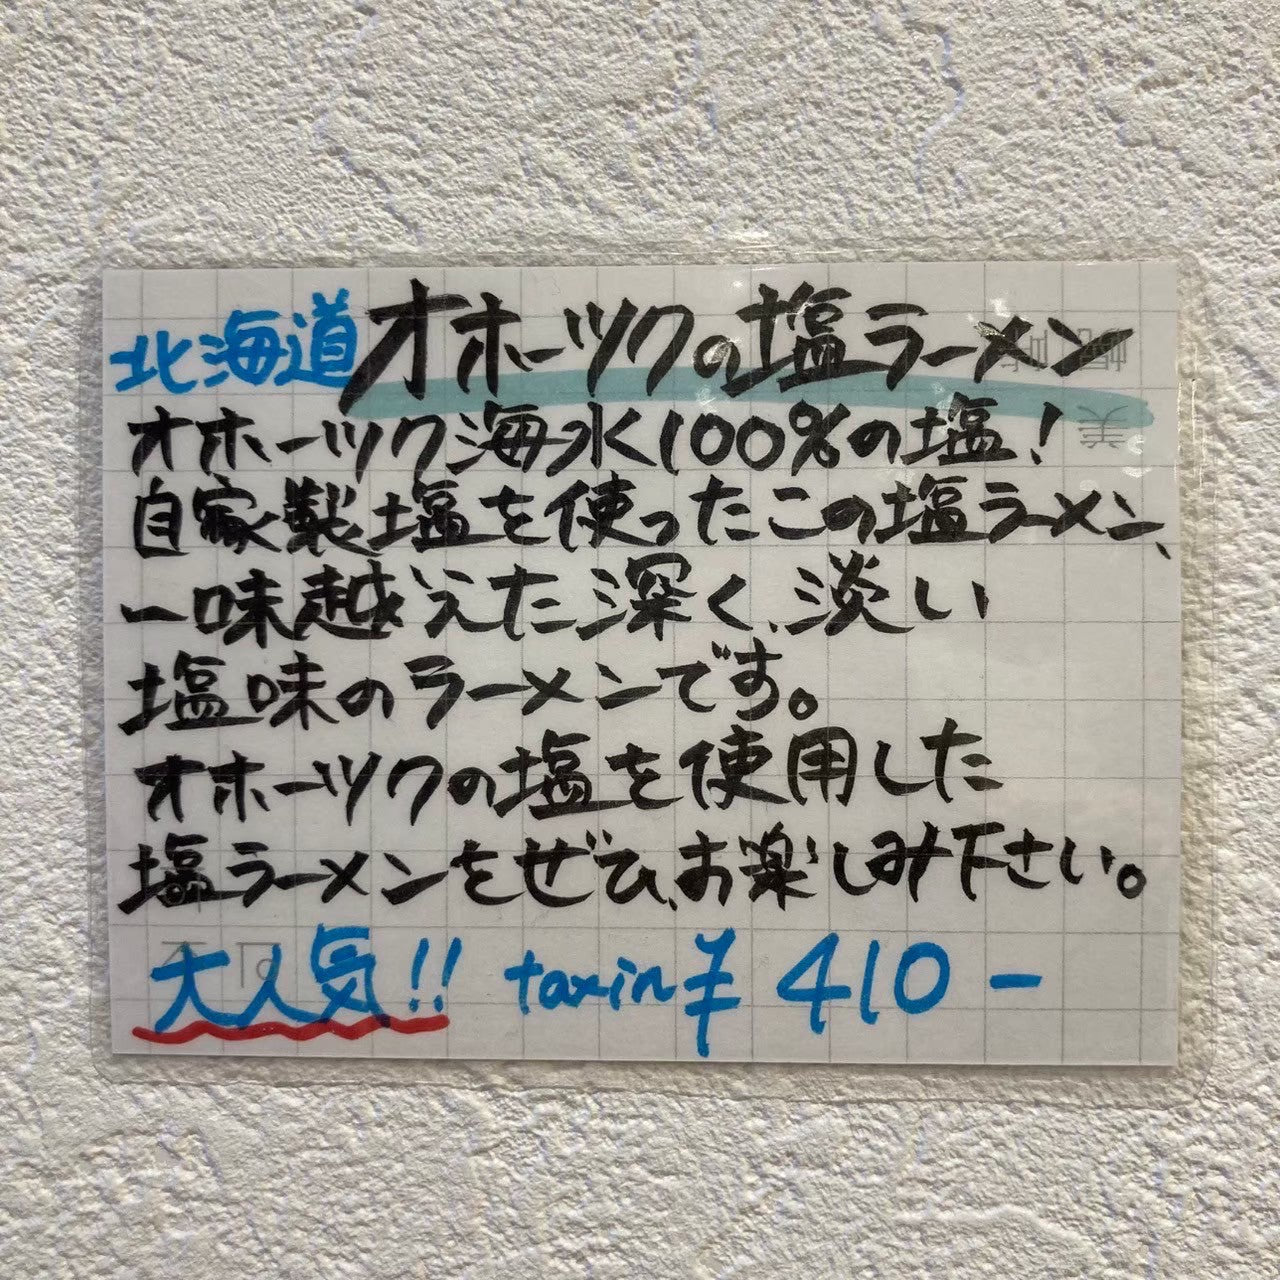 北海道オホーツクの塩ラーメン
オホーツク海水100%の塩!
自家製塩を使ったこの塩ラーメン、
一味越えた深く、淡い
塩味のラーメンです。
オホーツクの塩を使用した
塩ラーメンをぜひ、お楽しみ下さい。
大人気!! taxin¥410-